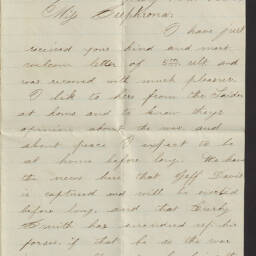 Miss Sephrona.
I have just
received your kind and most
welcom letter of 5th ult and
was received with much pleasure.
I lik to here from the Ladies
at home and to know theyr
opinion about the war and
about peace I expect to be
at home before long. We have
the news here that Jeff Davis
is captured and will be
before long, and that Kirby
Smith has surendered up his
forses, if that be so the war